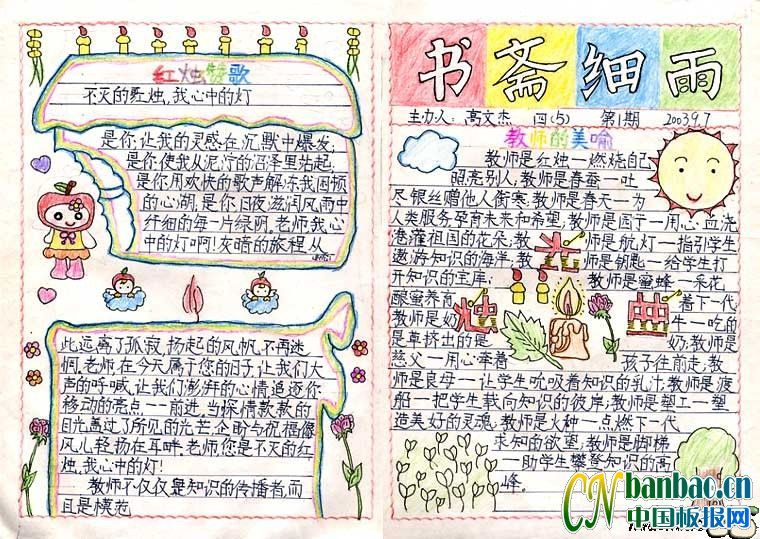 红烛赞歌
不灭的红烛,我心中的灯
是你,让我的灵感在沉默中爆发;
是你使我从泥泞的沼泽里站起;
是你用欢快的歌声解冻我困顿
的心湖,是你日夜滋润风雨中
纤细的每一片绿阴,老师,我心
中的灯啊!灰暗的旅程,从
此远离了孤寂,扬起的风帆,不再迷
惘,老师,在今天属于您的日子,让我们大
声的呼喊,让我们澎湃的心情追逐你
移动的亮点——前进,当深情款款的
目光,高过了所见的光芒,企盼与祝福像
风儿轻扬在耳畔,老师,您是不灭的红
烛,我心中的灯!
教师不仅仅是知识的传播者,而
且是模范
书斋细雨
主办人:高文杰 四(5) 第1期 2003.9.7
教师的美喻
教师是红烛—燃烧自己
照亮别人;教师是春蚕—吐
尽银丝赠他人衔寒;教师是春天—为
人类服务,孕育未来和希望;教师是园丁—用心血浇
灌祖国的花朵;教师是航灯—指引学生
遨游知识的海洋;教师是钥匙—给学生打
开知识的宝库;教师是蜜蜂—采花
酿蜜养育着下一代
教师是奶牛—吃的
是草挤出的是奶;教师是
慈父—用心牵着孩子往前走;教
师是良母—让学生吮吸着知识的乳汁;教师是渡
船—把学生载向知识的彼岸;教师是塑工—塑
造美好的灵魂;教师是火种—点燃下一代
求知的欲望;教师是脚梯
—助学生攀登知识的高
峰。
烛光
CNbanbao.cn
中国板报网